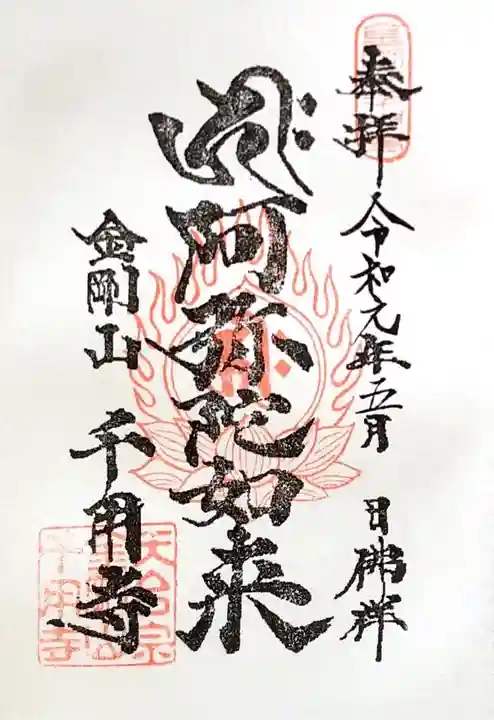 奉拝 令和元年五月 日 佛祥
𑖮𑖿𑖨𑖱𑖾 阿弥陀如来
金剛山 千用寺
天台宗
千用寺